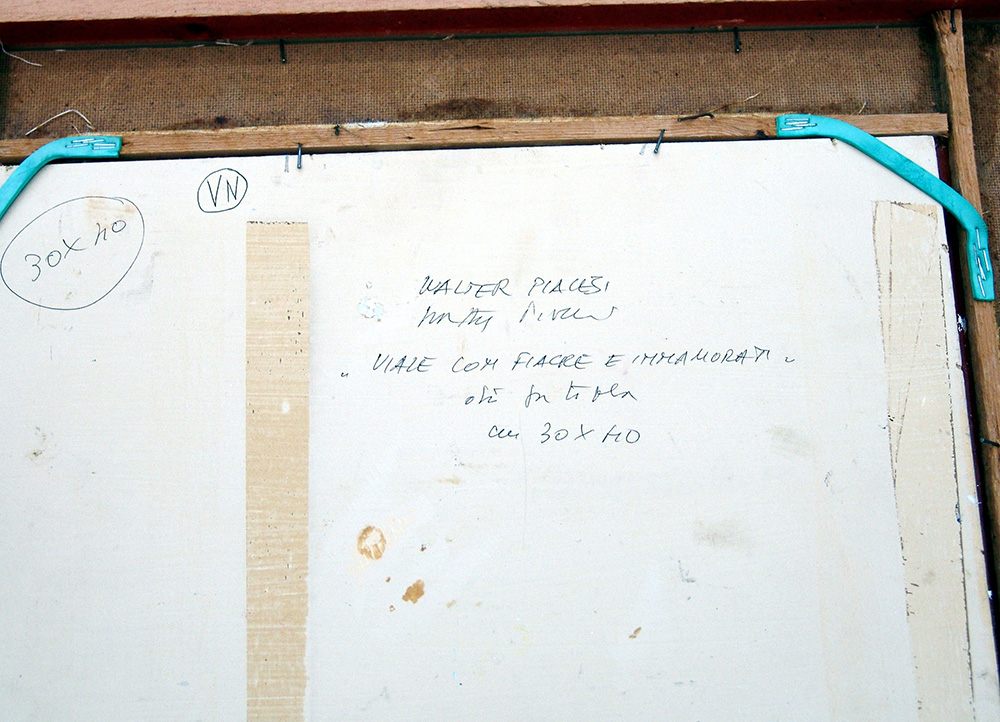 VN
30X40
WALTER PIACESI
„VIALE CON FIACRE E INNAMORATI„
olio su tela
cm 30X40